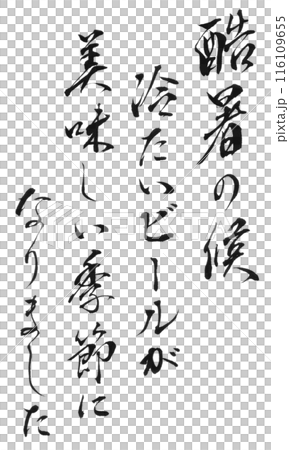 酷暑の候
冷たいビールが
美味しい季節に
なりました
pixta.jp - 116109655